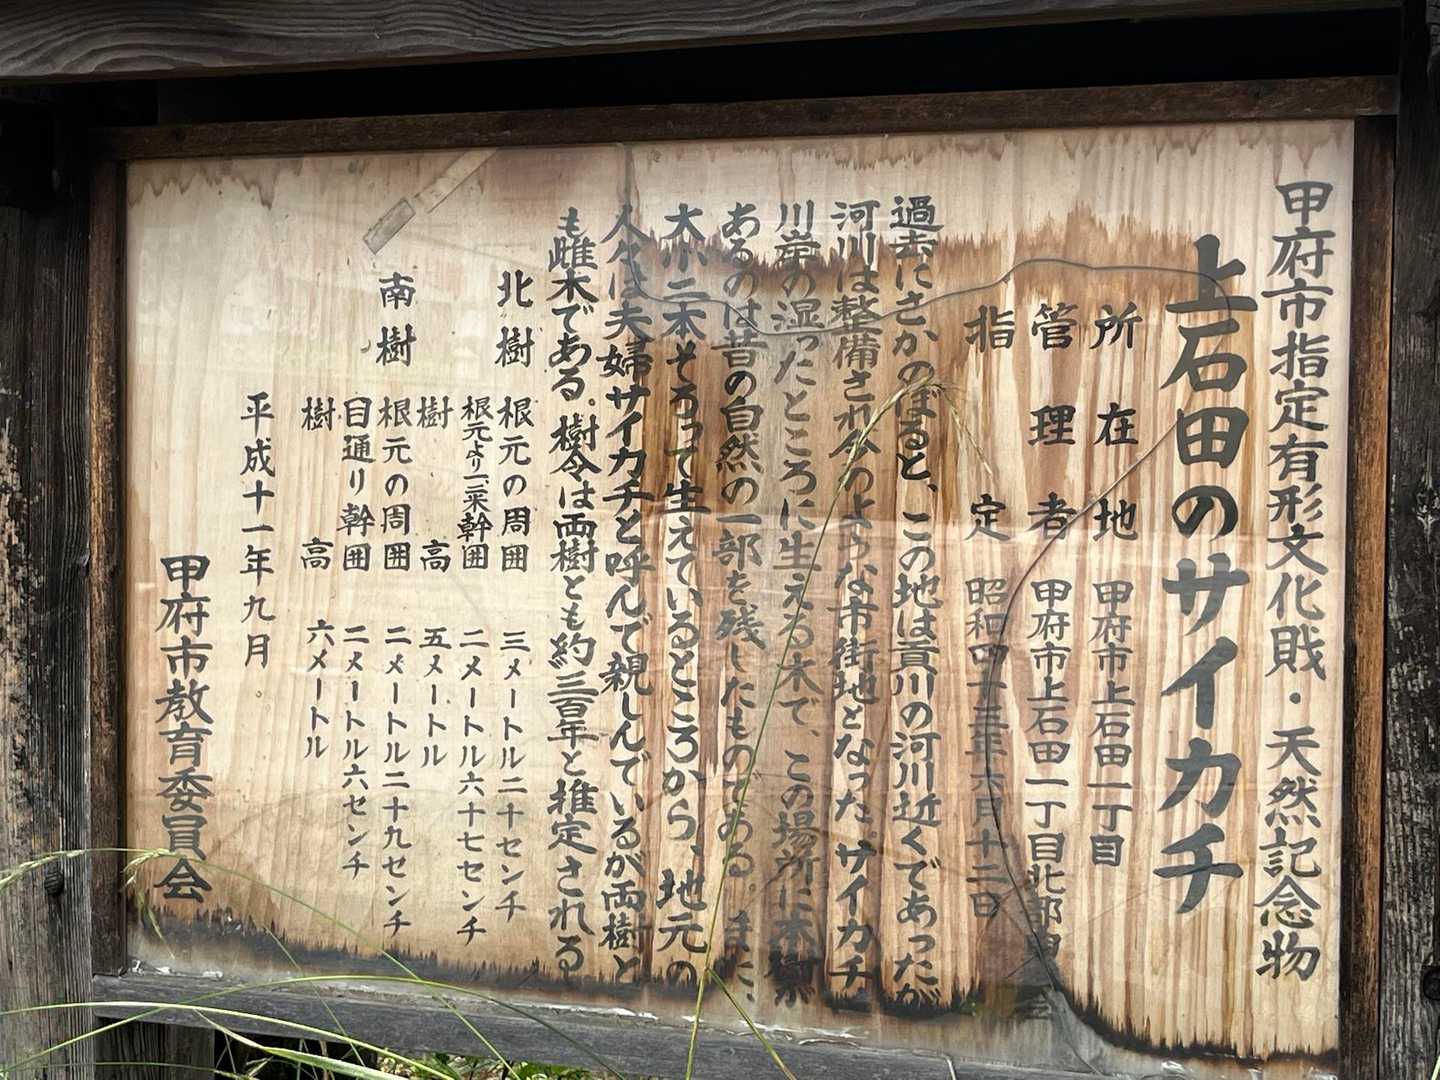 甲府市指定有形文化財・天然記念物
上石田のサイカチ
所在地 甲府市上石田一丁目
管理者 甲府市上石田一丁目北部
指定 昭和四十三年六月十二日
過去にさかのぼると、この地は貢川の河川近くであったが
河川は整備され今のような市街地となった。サイカチ
川岸の湿ったところに生える木で、この場所に本樹が
あるのは昔の自然の一部を残したものである。また、
大小二本そろって生えているところから、地元の
人々は夫婦サイカチと呼んで親しんでいるが両樹と
も雌木である。樹令は両樹とも約三百年と推定される
北樹 根元の周囲 三メートル二十センチ
根元より二米幹囲 二メートル六十七センチ
樹高 五メートル
南樹 根元の周囲 二メートル二十九センチ
目通り幹囲 二メートル六センチ
樹高 六メートル
平成十一年九月
甲府市教育委員会